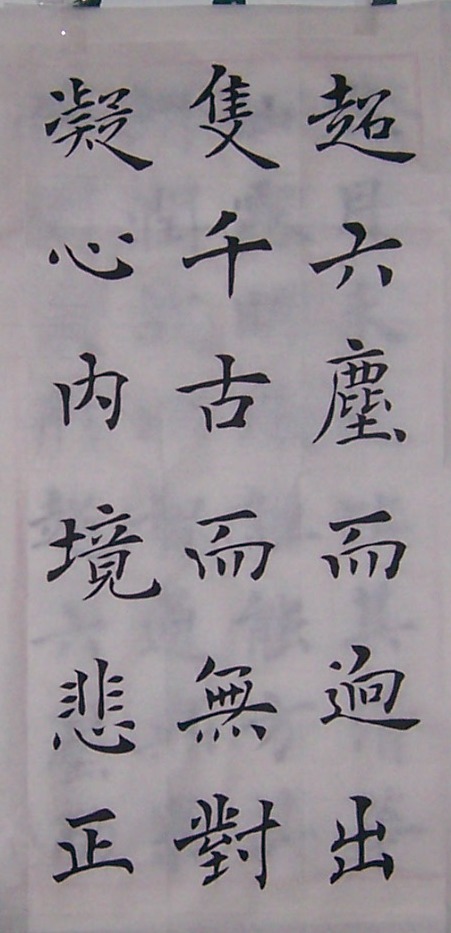 超六塵而迥出
隻千古而無對
凝心内境悲正